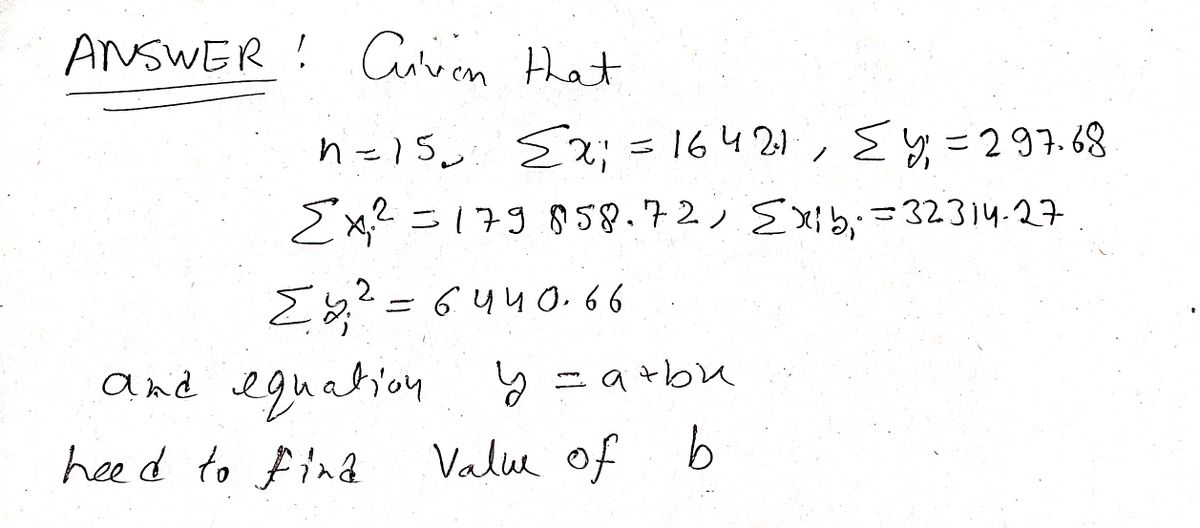 ANSWER ! Given that
n = 15, Σxᵢ = 1642.1, Σyᵢ = 297.68
Σxᵢ² = 179858.72, Σxᵢbᵢ = 32314.27.
Σyᵢ² = 6440.66
and equation y = a+bx
need to find Value of b